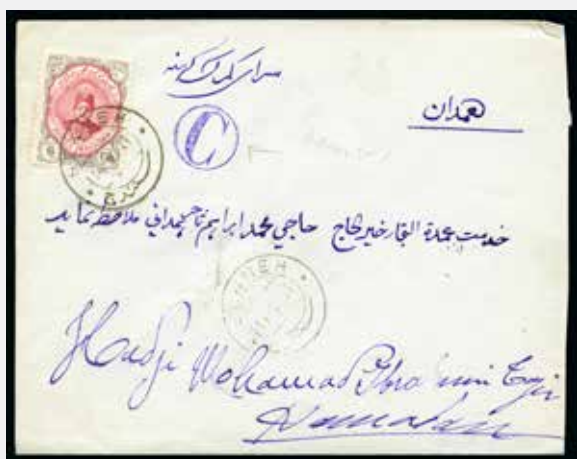 سرای گمرک کهنه
همدان
C
خدمت عمدة التجار خیر الحاج حاجی محمد ابراهیم تاجر همدانی ملاحظه نماید
Hadji Mohamad Ibrahim
Hamadan